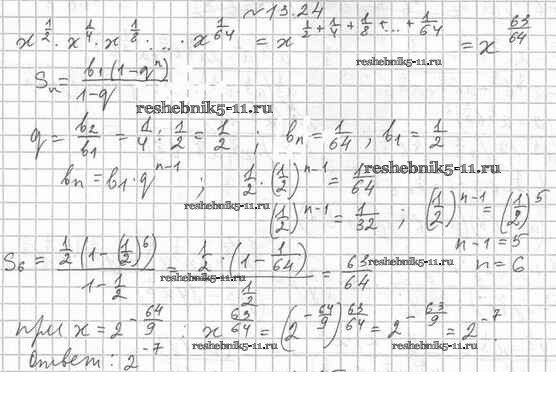 №13.24
x^{1/2} · x^{1/4} · x^{1/8} · … · x^{1/64} = x^{1/2 + 1/4 + 1/8 + … + 1/64} = x^{63/64}
Sₙ = b₁(1-qⁿ)/(1-q)
reshebnik5-11.ru
q = b₂/b₁ = 1/4 : 1/2 = 1/2 ; bₙ = 1/64, b₁ = 1/2
bₙ = b₁ · q^{n-1} ; 1/2 · (1/2)^{n-1} = 1/64 reshebnik5-11.ru
reshebnik5-11.ru (1/2)^{n-1} = 1/32 ; (1/2)^{n-1} = (1/2)^5
n-1 = 5
S₆ = 1/2(1-(1/2)^6)/(1-1/2) = 1/2·(1-1/64)/(1/2) = 63/64 reshebnik5-11.ru n = 6
при x = 2^{-64/9} : x^{63/64} = (2^{-64/9})^{63/64} = 2^{-63/9} = 2^{-7}
reshebnik5-11.ru reshebnik5-11.ru
Ответ: 2^{-7}